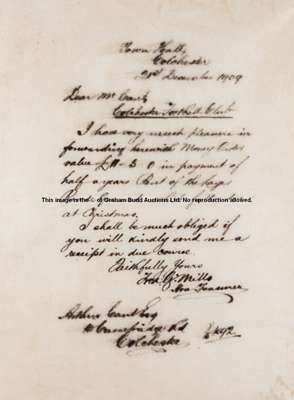 Town Hall,
Colchester
21st December 1909
Dear Mr Cant,
Colchester Football Club
I have very much pleasure in
forwarding herewith Money Order
value £11-5-0 in payment of
half a years Rent of the Layer
This image is the © of Graham Budd Auctions Ltd. No reproduction allowed
at Christmas.
I shall be much obliged if
you will kindly send me a
receipt in due course.
Faithfully Yours
Mills
Hon Treasurer
Arthur Cant Esq
Rd
Colchester